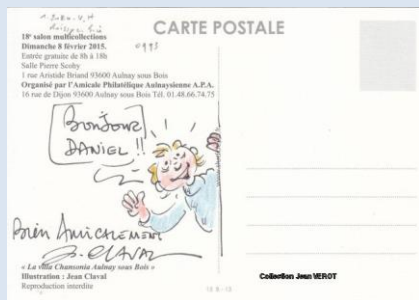 CARTE POSTALE
18e salon multicollections
Dimanche 8 février 2015.
Entrée gratuite de 8h à 18h
Salle Pierre Scohy
1 rue Aristide Briand 93600 Aulnay sous Bois
Organisé par l'Amicale Philatélique Aulnaysienne A.P.A.
16 rue de Dijon 93600 Aulnay sous Bois Tél. 01.48.66.74.75
BONJOUR
DANIEL !!
Bien Amicalement
J. CLAVAL
« La villa Chansonia Aulnay sous Bois »
Illustration : Jean Claval
Reproduction interdite
Collection Jean VEROT